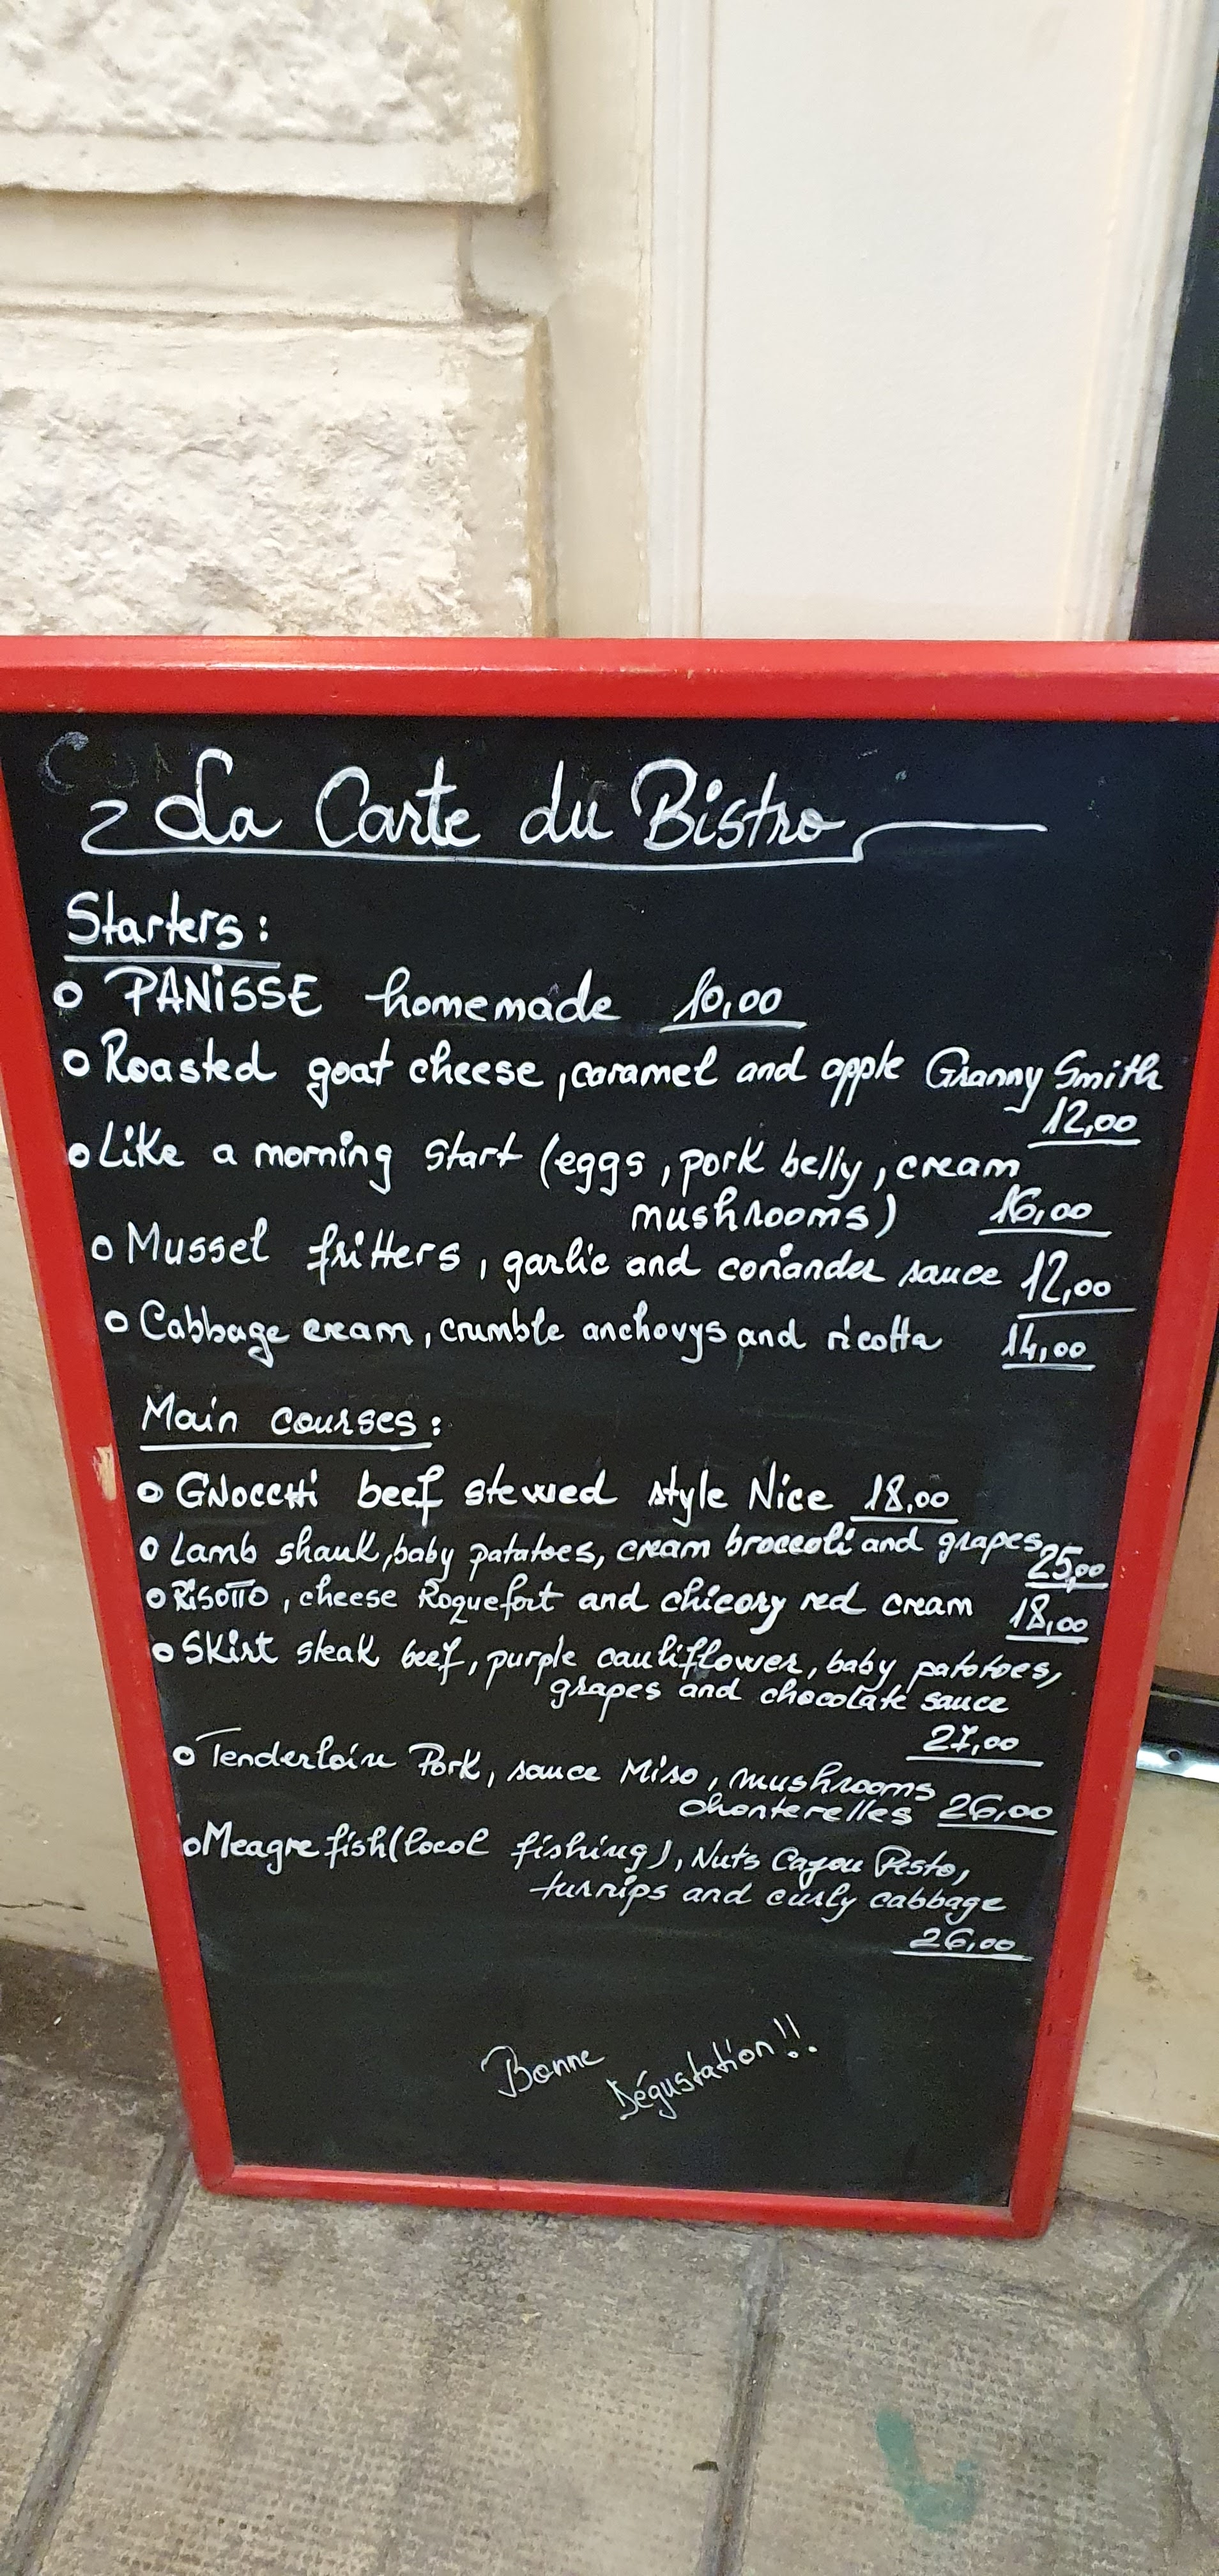 La Carte du Bistro
Starters :
PANiSSE homemade 10,00
Roasted goat cheese, caramel and apple Granny Smith
12,00
Like a morning start (eggs, pork belly, cream
mushrooms) 16,00
Mussel fritters, garlic and coriander sauce 12,00
Cabbage cream, crumble anchovys and ricotta 14,00
Main courses :
GNOCCHi beef stewed style Nice 18,00
Lamb shank, baby patatoes, cream broccoli and grapes 25,00
RiSOTTO, cheese Roquefort and chicory red cream 18,00
Skirt steak beef, purple cauliflower, baby patotoes,
grapes and chocolate sauce
27,00
Tenderloin Pork, sauce Miso, mushrooms
chanterelles 26,00
Meagre fish (local fishing), Nuts Cajou Pesto,
turnips and curly cabbage
26,00
Bonne
Dégustation !!